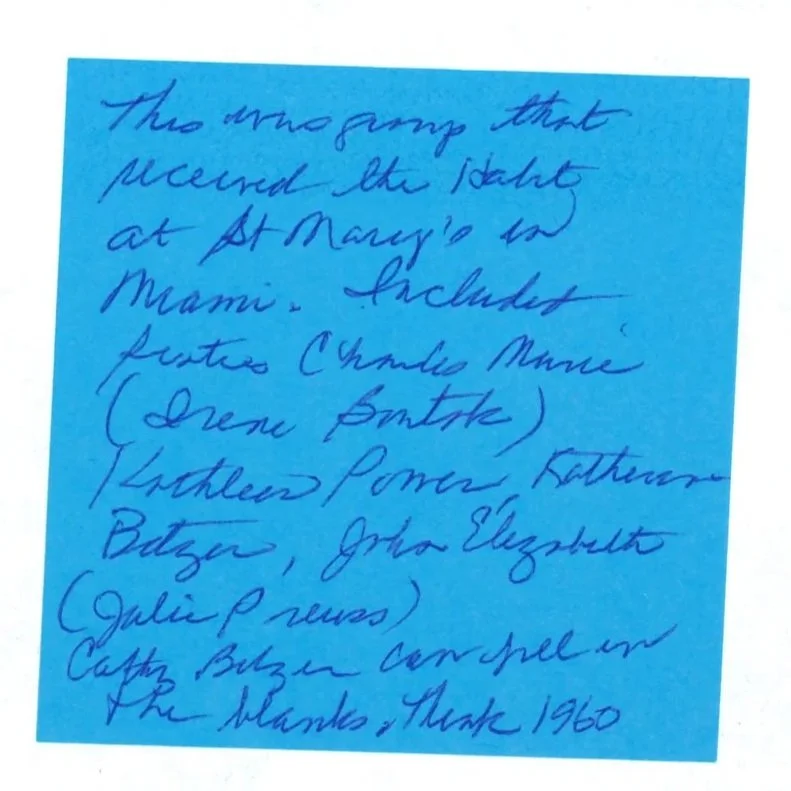 This was group that
received the Habit
at St Mary's in
Miami. Included
Sisters Charles Marie
(Irene
Kathleen Power, Katherine
Betzer, John Elizabeth
(Julie Preuss)
Cathy Betzer can fill in
the blanks. Think 1960